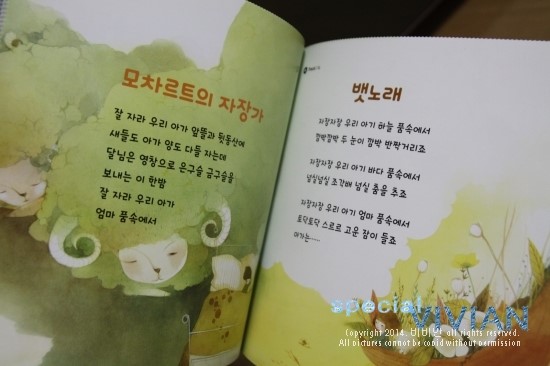 모차르트의 자장가
잘 자라 우리 아가 앞뜰과 뒷동산에
새들도 아가 양도 다들 자는데
달님은 영창으로 은구슬 금구슬을
보내는 이 한밤
잘 자라 우리 아가
엄마 품속에서
뱃노래
자장자장 우리 아기 하늘 품속에서
깜박깜박 두 눈이 깜박 반짝거리죠
자장자장 우리 아기 바다 품속에서
넘실넘실 조각배 넘실 춤을 추죠
자장자장 우리 아기 엄마 품속에서
토닥토닥 스르르 고운 잠이 들죠
아가는……
special
VIVIAN
Copyright 2014. 비비안 all rights reserved.
All pictures cannot be copid without permission